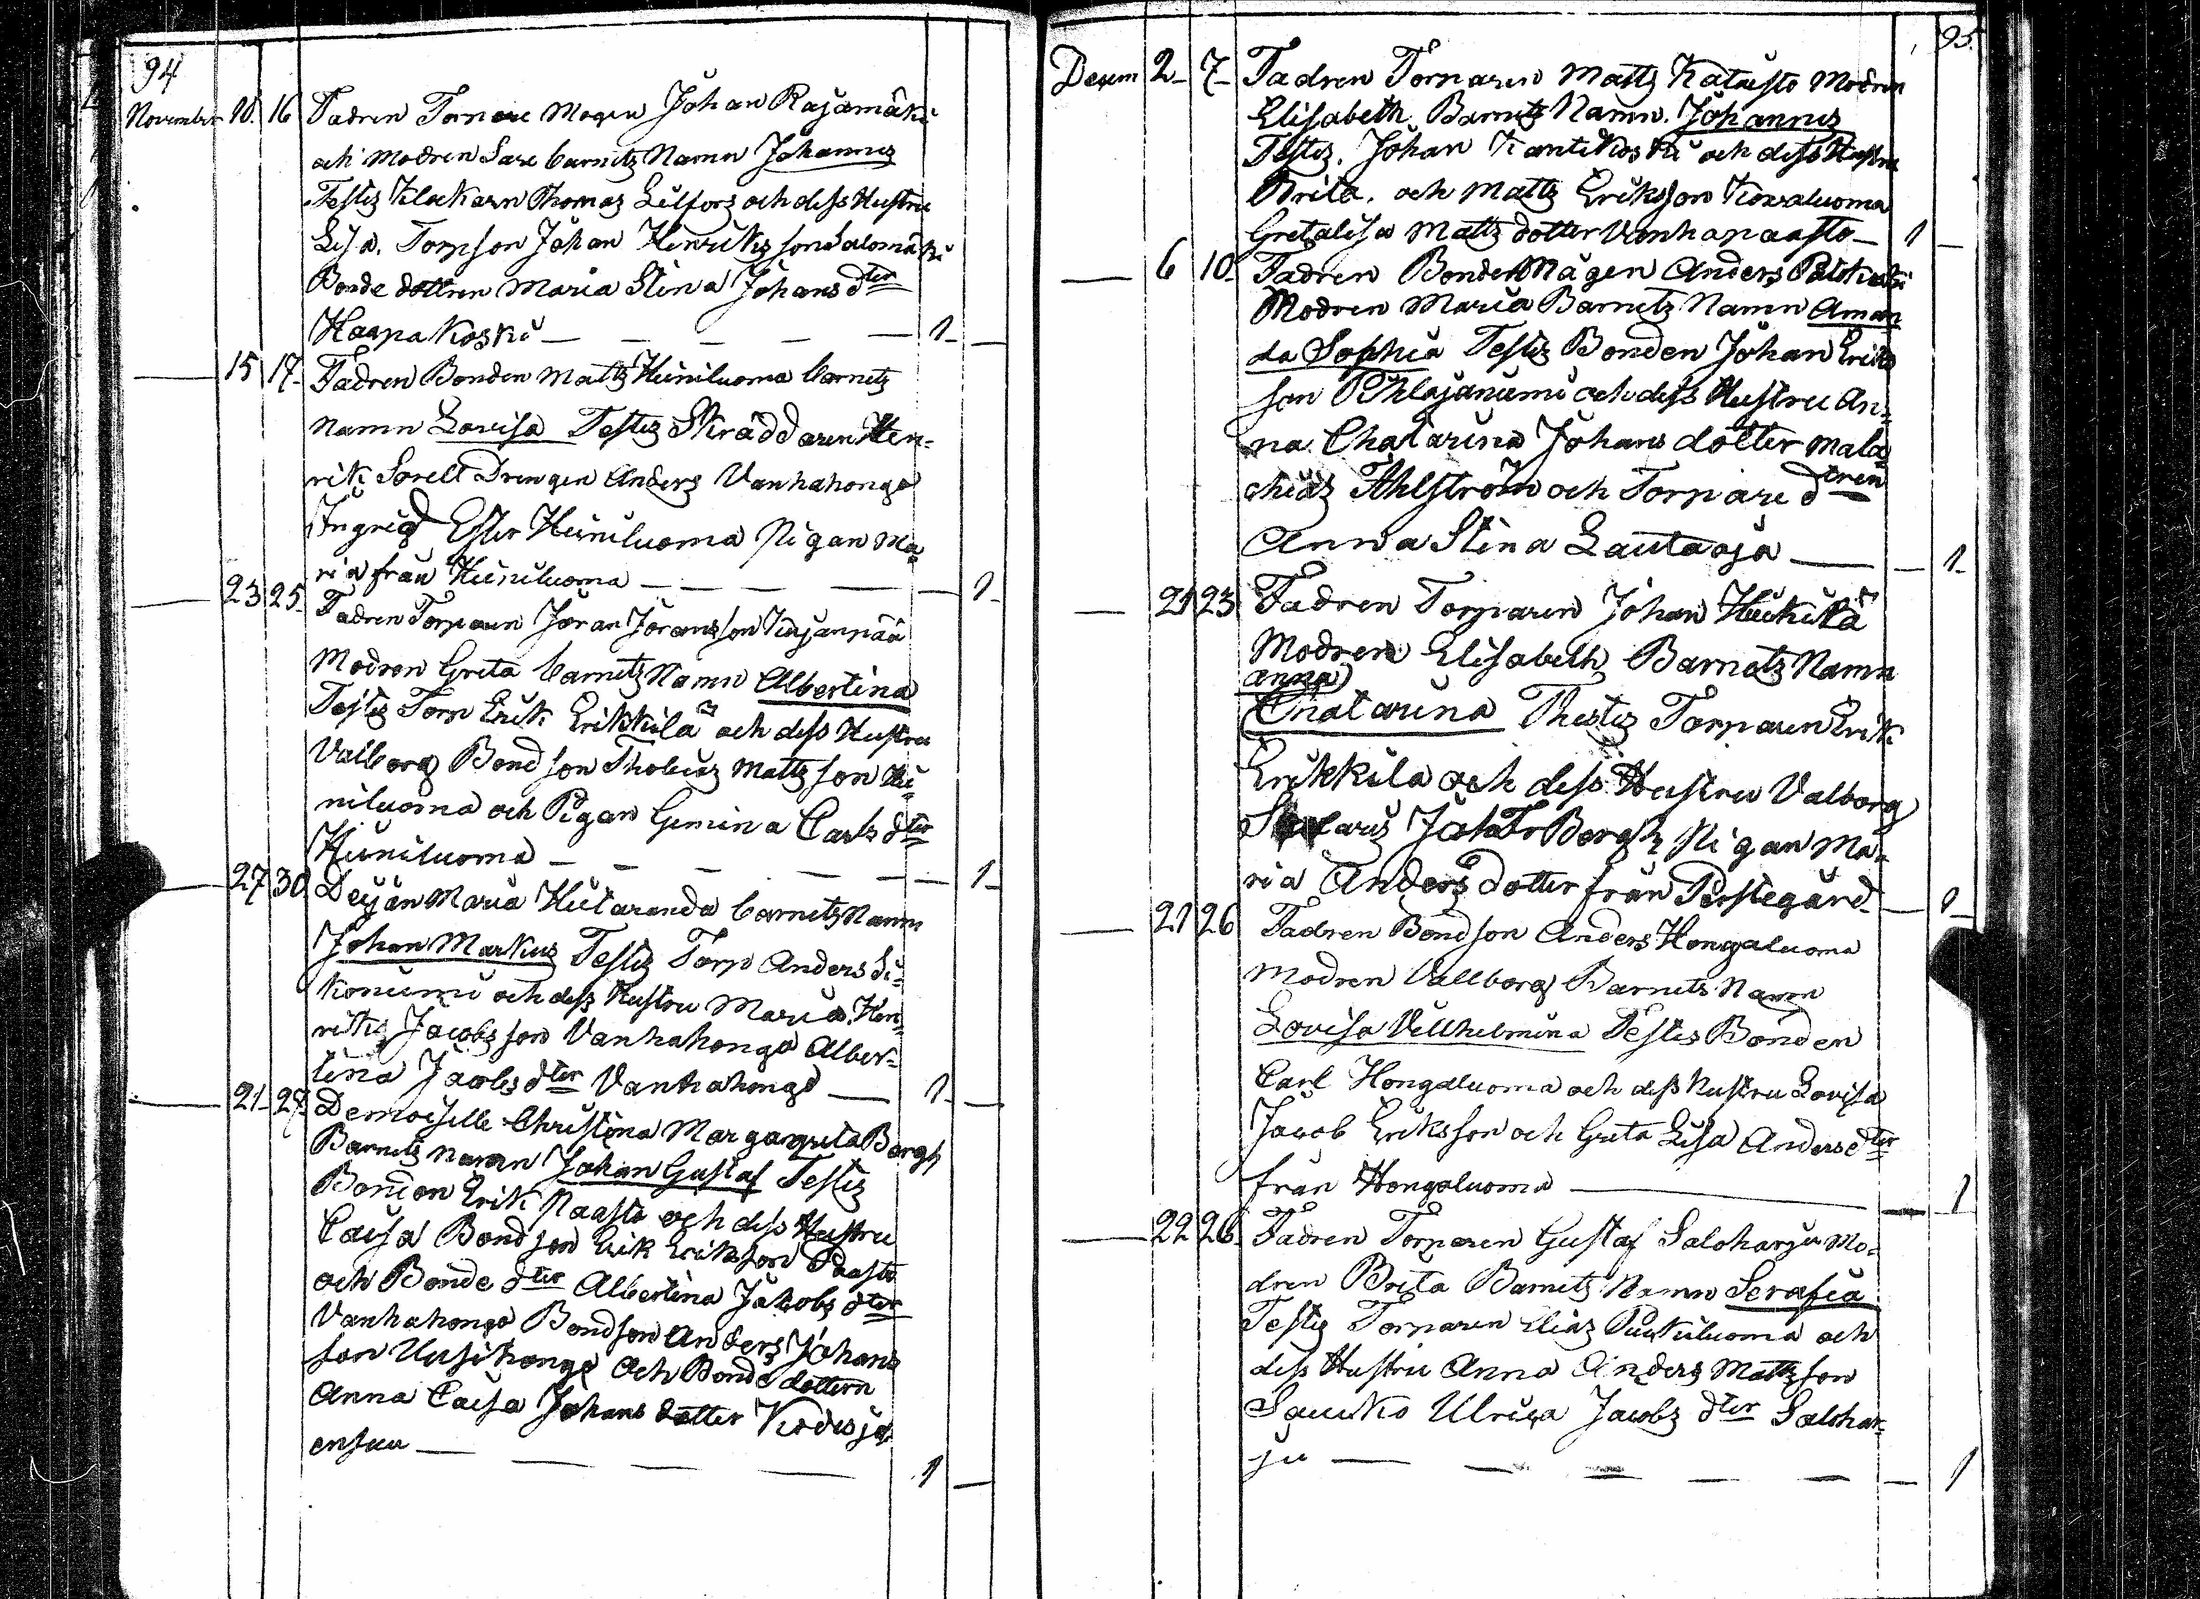 94
November 10. 16 Fadren Torpare Mågen Johan Rajamäki
och Modren Sara barnetz Namn Johannes
Testes Klockarn Thomas Lilfors och dess Hustru
Lisa. Torpson Johan Henriks son Salomäki
Bonde dottren Maria Stina Johans dter
Haapakoski — 1
— 15 17 Fadren Bonden Matts Hiiniluoma barnetz
Namn Lovisa Testes Skräddaren Hen-
rik Sorell Drengen Anders Vanhahongo
Ingrid Ester Hiiniluoma Pigan Ma-
ria från Hiiniluoma — 1
— 23 25 Fadren Torparn Jöran Jöransson Kirjanpää
Modren Greta barnetz Namn Albertina
Testes Torp Erik Erikkilä och dess Hustru
Valborg Bondson Thobias Mattsson Hii-
niluoma och Pigan Gemina Carls dter
Hiiniluoma — 1
— 27 30 Deijan Maria Hietaranda barnetz Namn
Johan Markus Testes Torp Anders Si-
koniemi och dess Hustru Maria. Hen-
riks Jacobs son Vanhahongo Alber-
tina Jacobs dter Vanhahongo — 1
— 21 27 Demoiselle Christina Margareta Bergh
Barnetz namn Johan Gustaf Testes
Bonden Erik Naasto och dess Hustru
Caisa Bondson Erik Eriksson Paasto
och Bonde dter Albertina Jakobs dter
Vanhahongo Bondson Anders Johans
son Uusihongo Och Bonde dottern
Anna Caisa Johans dotter Kodesjo
ensuu — 1
95.
Decem 2 7 Fadren Torparen Matts Katusto Modren
Elisabeth Barnetz Namn. Johannes
Testes. Johan Kantikoski och dess Hustru
Brita. och Matts Eriksson Kowaluoma
Gretalisa Matts dotter Vanhanaasto — 1
— 6 10 Fadren Bonde Mågen Anders
Modren Maria Barnetz Namn Aman
da Sophia Testes Bonden Johan Eriks
son Pihlajaniemi och dess Hustru An-
na Chatarina Johans dotter Mala-
chias Åhlström och Torpare dtren
Anna Stina Lautaoja — 1
— 21 23 Fadren Torparen Johan Heikkilä
Modren Elisabeth Barnetz Namn
Anna
Chatarina Thestes Torparen Erik
Erikkila och dess Hustru Valborg
Jakob Bergh Pigan Ma-
ria Anders dotter från Prostegård — 1
— 21 26 Fadren Bondson Anders Hongaluoma
Modren Vallborg Barnets Namn
Lovisa Villhelmina Testes Bonden
Carl Hongaluoma och dess Hustru Lovisa
Jacob Eriksson och Greta Lisa Anders dter
från Hongaluoma — 1
— 22 26 Fadren Torparen Gustaf Saloharju Mo-
dren Brita Barnetz Namn Serafia
Testes Torparen Elias Piikiluoma och
dess Hustru Anna Anders Mattsson
Saucko Ulrica Jacobs dter Salohar-
ju — 1